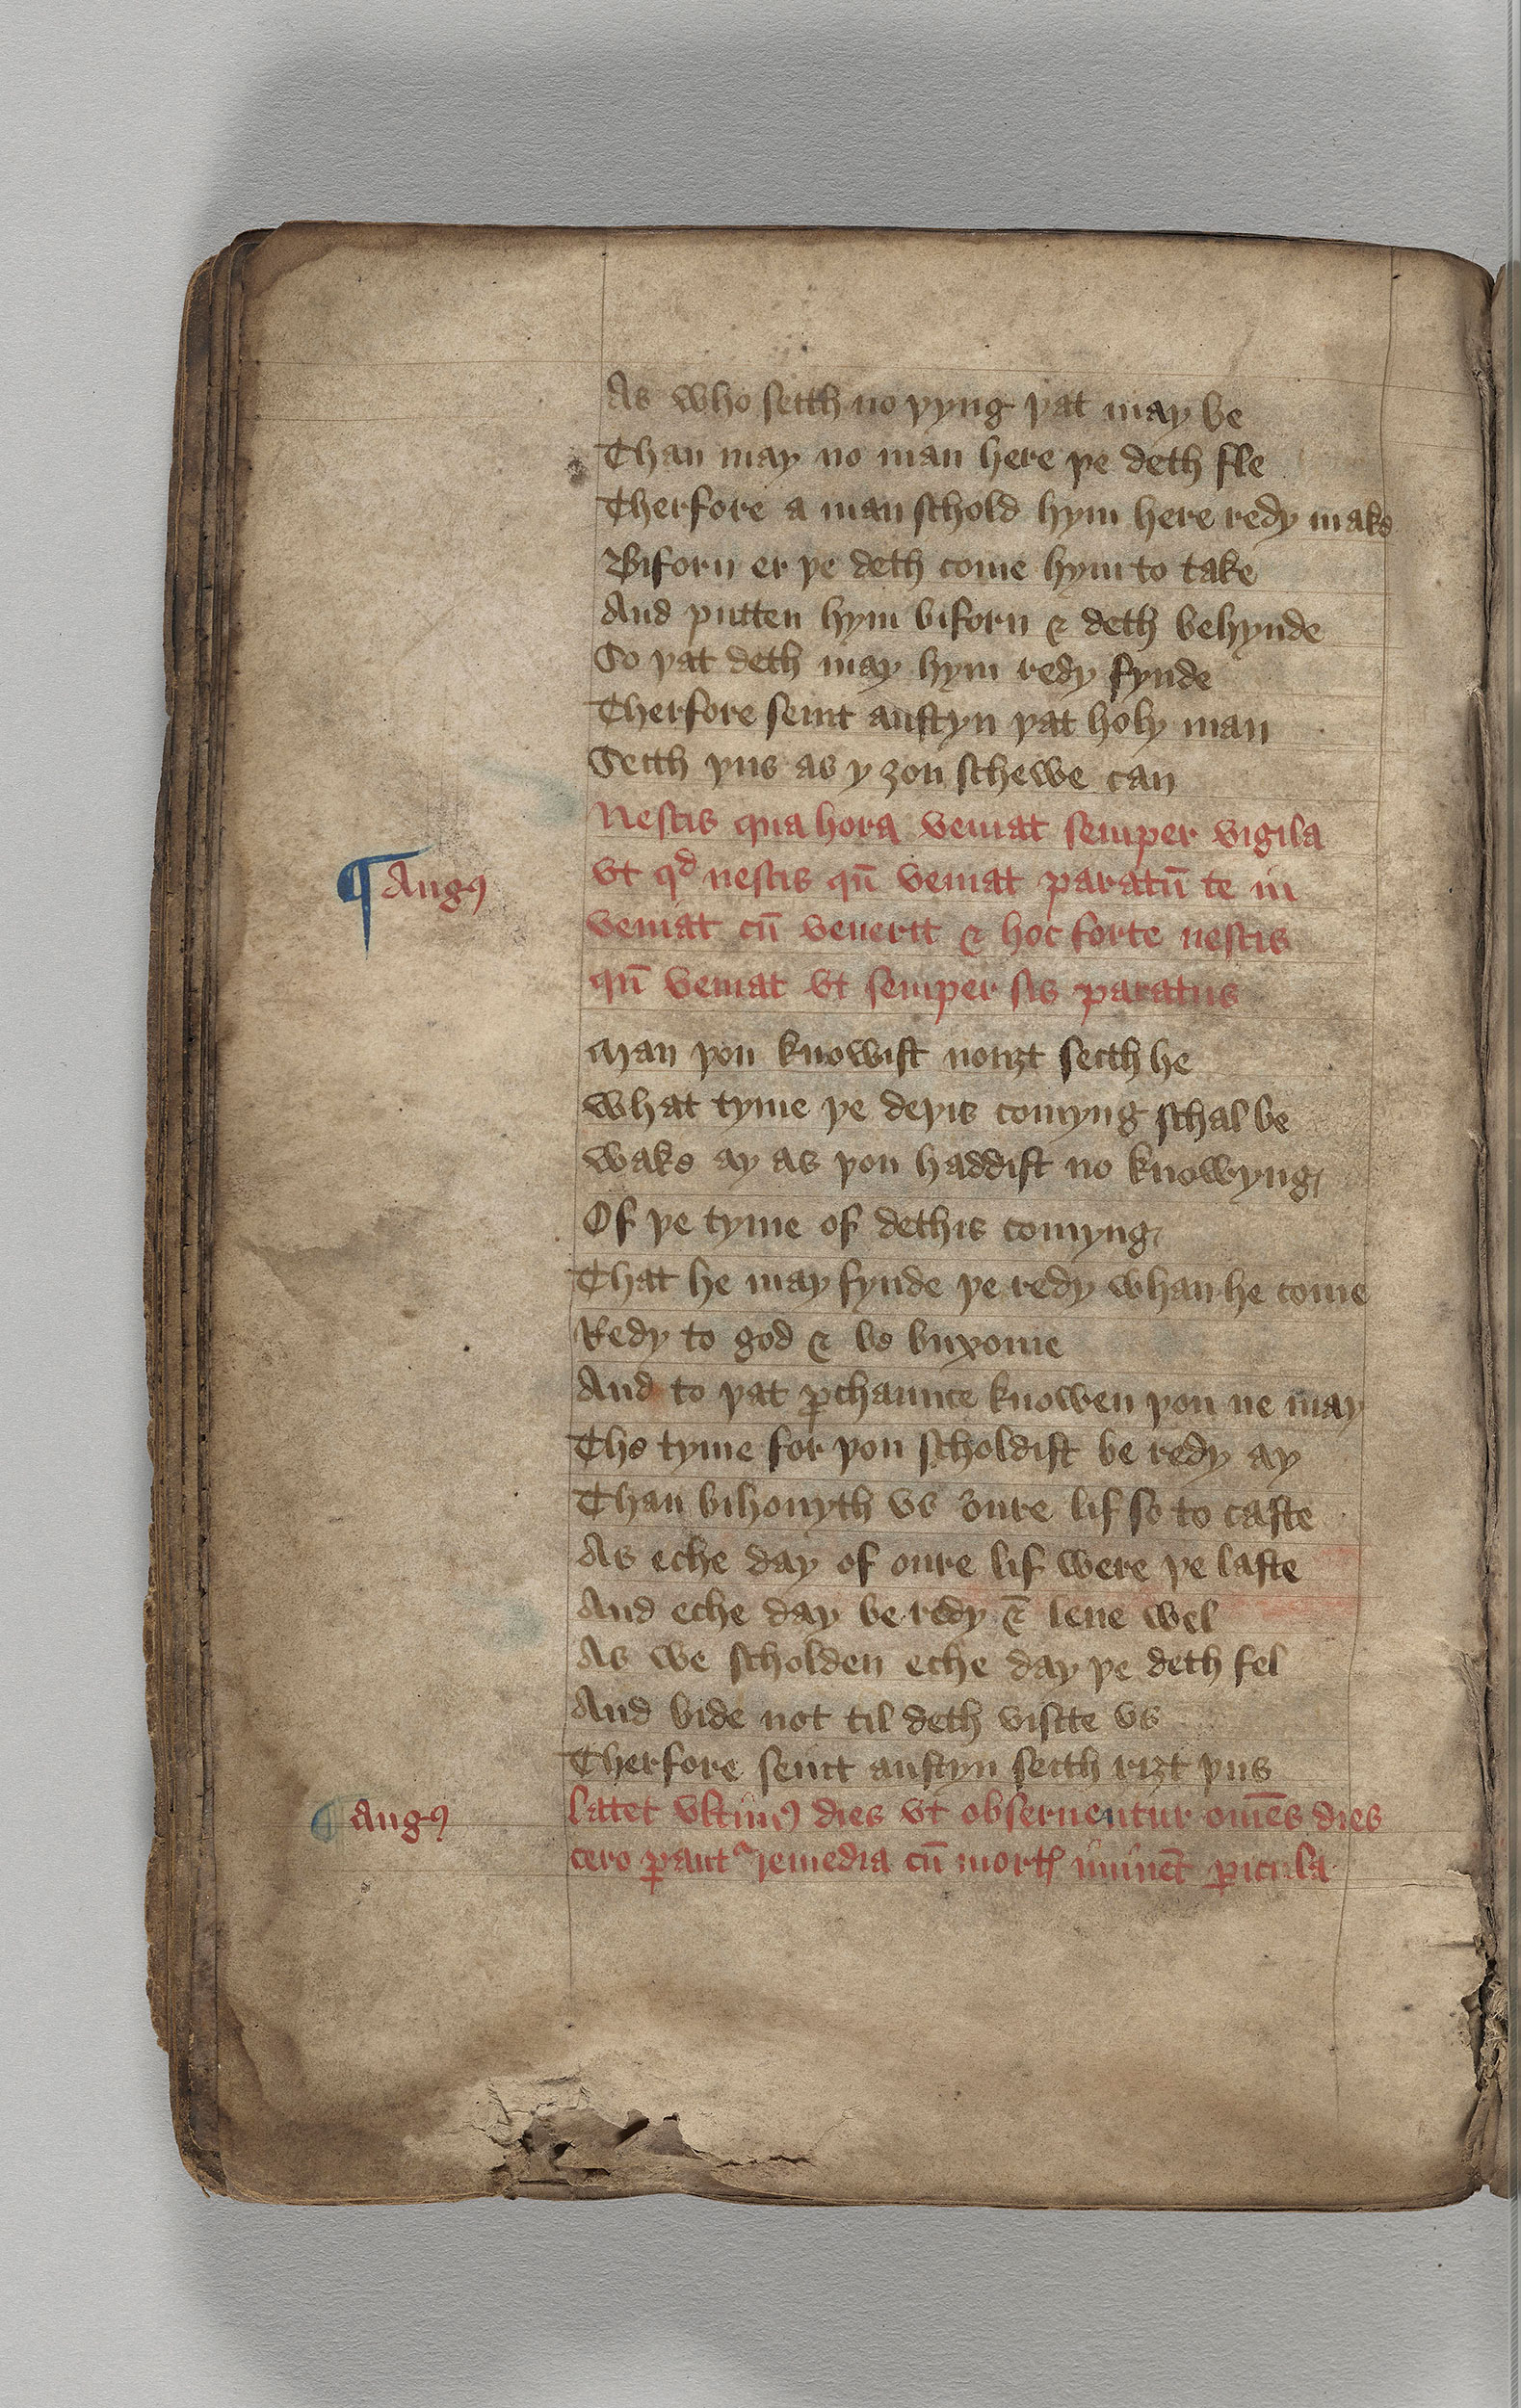 As who seith no þyng þat may be
Than may no man here þe deth fle
Therfore a man schold hym here redy make
Biforn er þe deth come hym to take
And putten hym biforn & deth behynde
So þat deth may hym redy fynde
Therfore seint austyn þat holy man
Seith þus as y ȝou schewe can
Nescis qua hora veniat semper vigila
¶ Augꝯ vt qd nescis qn̄ veniat paratū te in
veniat cū venerit & hoc forte nescis
qn̄ veniat vt semper sis paratus
Man þou knowist nouȝt seith he
What tyme þe deþis comyng schal be
Wake ay as þou haddist no knowyng
Of þe tyme of dethis comyng
That he may fynde þe redy whan he come
Redy to god & be buxome
And to þat ꝑchaunce knowen þou ne may
The tyme for þou scholdist be redy ay
Than bihouyth vs oure lif so to caste
As eche day of oure lif were þe laste
And eche day be redy & leue wel
As we scholden eche day þe deth fel
And bide not til deth visite vs
Therfore seint austyn seith riȝt þus
¶ Augꝯ latet vltimꝯ dies vt obseruentur om̄es dies
cero ꝑantᵃ remedia cū mortꝭ iminēt ꝑicula